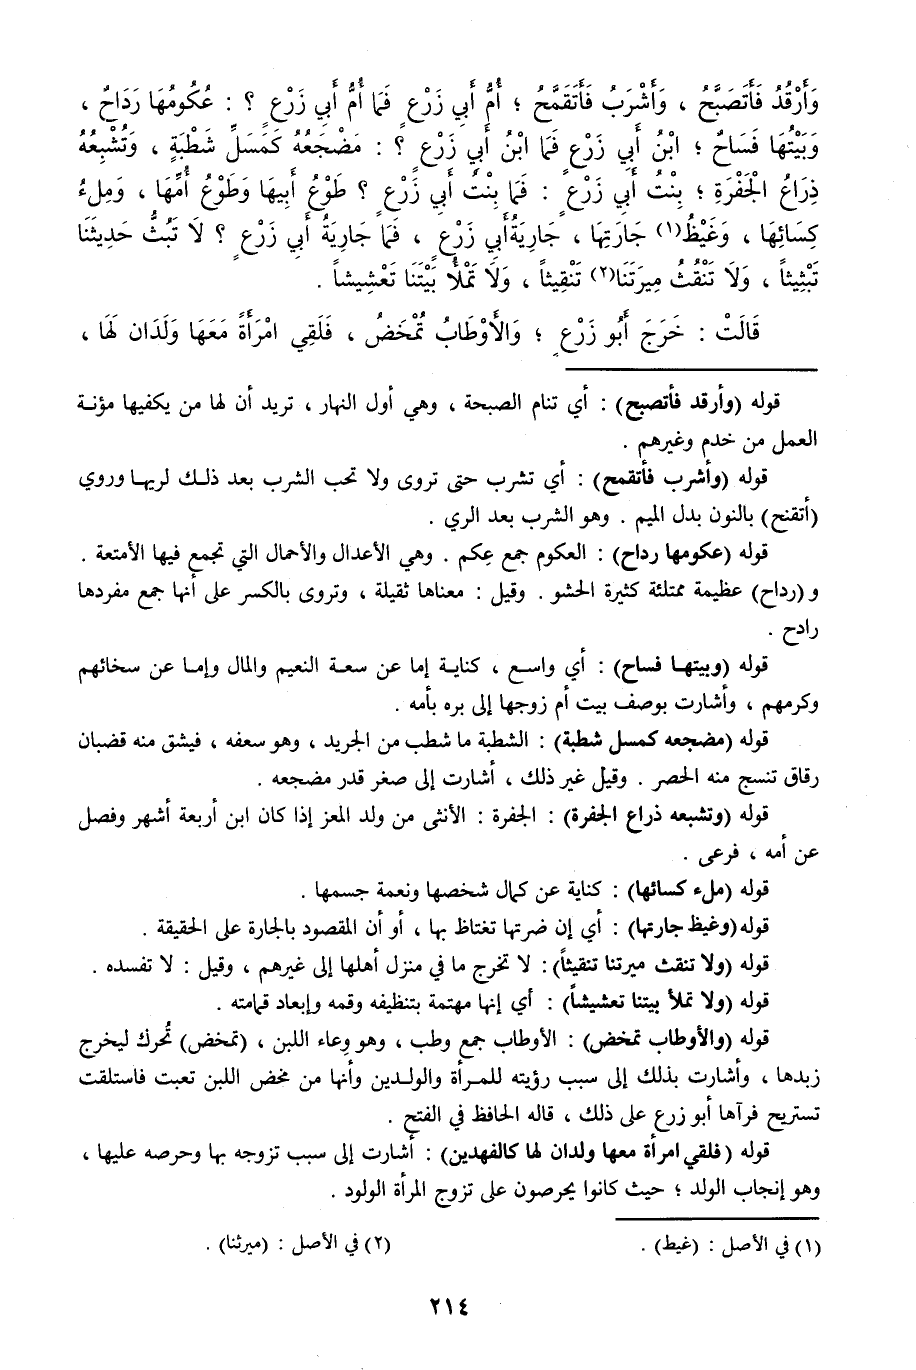 وَأَرْقُدُ فَأَتَصَبَّحُ ، وَأَشْرَبُ فَأَتَقَمَّحُ ؛ أُمُّ أَبِي زَرْعٍ فَمَا أُمُّ أَبِي زَرْعٍ ؟ : عُكُومُهَا رَدَاحٌ ،
وَبَيْتُهَا فَسَاحٌ ؛ ابْنُ أَبِي زَرْعٍ فَمَا ابْنُ أَبِي زَرْعٍ ؟ : مَضْجَعُهُ كَمَسَلِّ شَطْبَةٍ ، وَتُشْبِعُهُ
ذِرَاعُ الْجَفْرَةِ ؛ بِنْتُ أَبِي زَرْعٍ : فَمَا بِنْتُ أَبِي زَرْعٍ ؟ طَوْعُ أَبِيهَا وَطَوْعُ أُمِّهَا ، وَمِلءُ
كِسَائِهَا ، وَغَيْظُ(١) جَارَتِهَا ، جَارِيَةُ أَبِي زَرْعٍ ، فَمَا جَارِيَةُ أَبِي زَرْعٍ ؟ لَا تَبُثُّ حَدِيثَنَا
تَبْثِيثاً ، وَلَا تَنْقُثُ مِيرَتَنَا(٢) تَنْقِيثاً ، وَلَا تَمْلَأُ بَيْتَنَا تَعْشِيشاً .
قَالَتْ : خَرَجَ أَبُو زَرْعٍ ؛ وَالْأَوْطَابُ تُمْخَضُ ، فَلَقِي امْرَأَةً مَعَهَا وَلَدَان لَهَا ،
قوله (وأرقد فأتصبح) : أي تنام الصبحة ، وهي أول النهار ، تريد أن لها من يكفيها مؤنة
العمل من خدم وغيرهم .
قوله (وأشرب فأتقمح) : أي تشرب حتى تروى ولا تحب الشرب بعد ذلك لريها وروي
(أتقنح) بالنون بدل الميم . وهو الشرب بعد الري .
قوله (عكومها رداح) : العكوم جمع عِكم . وهي الأعدال والأحمال التي تجمع فيها الأمتعة .
و (رداح) عظيمة ممتلئة كثيرة الحشو . وقيل : معناها ثقيلة ، وتروى بالكسر على أنها جمع مفردها
رادح .
قوله (وبيتها فساح) : أي واسع ، كناية إما عن سعة النعيم والمال وإما عن سخائهم
وكرمهم ، وأشارت بوصف بيت أم زوجها إلى بره بأمه .
قوله (مضجعه كمسل شطبة) : الشطبة ما شطب من الجريد ، وهو سعفه ، فيشق منه قضبان
رقاق تنسج منه الحصر . وقيل غير ذلك ، أشارت إلى صغر قدر مضجعه .
قوله (وتشبعه ذراع الجفرة) : الجفرة : الأنثى من ولد المعز إذا كان ابن أربعة أشهر وفصل
عن أمه ، فرعى .
قوله (ملء كسائها) : كناية عن كمال شخصها ونعمة جسمها .
قوله (وغيظ جارتها) : أي إن ضرتها تغتاظ بها ، أو أن المقصود بالجارة على الحقيقة .
قوله (ولا تنقث ميرتنا تنقيثاً) : لا تخرج ما في منزل أهلها إلى غيرهم ، وقيل : لا تفسده .
قوله (ولا تملأ بيتنا تعشيشاً) : أي إنها مهتمة بتنظيفه وقمه وإبعاد قمامته .
قوله (والأوطاب تمخض) : الأوطاب جمع وطب ، وهو وِعاء اللبن ، (تمخض) تُحرك ليخرج
زبدها ، وأشارت بذلك إلى سبب رؤيته للمرأة والولدين وأنها من مخض اللبن تعبت فاستلقت
تستريح فرآها أبو زرع على ذلك ، قاله الحافظ في الفتح .
قوله (فلقي امرأة معها ولدان لها كالفهدين) : أشارت إلى سبب تزوجه بها وحرصه عليها ،
وهو إنجاب الولد ؛ حيث كانوا يحرصون على تزوج المرأة الولود .
(١) في الأصل : (غيط) . (٢) في الأصل : (ميرثنا) .
٢١٤